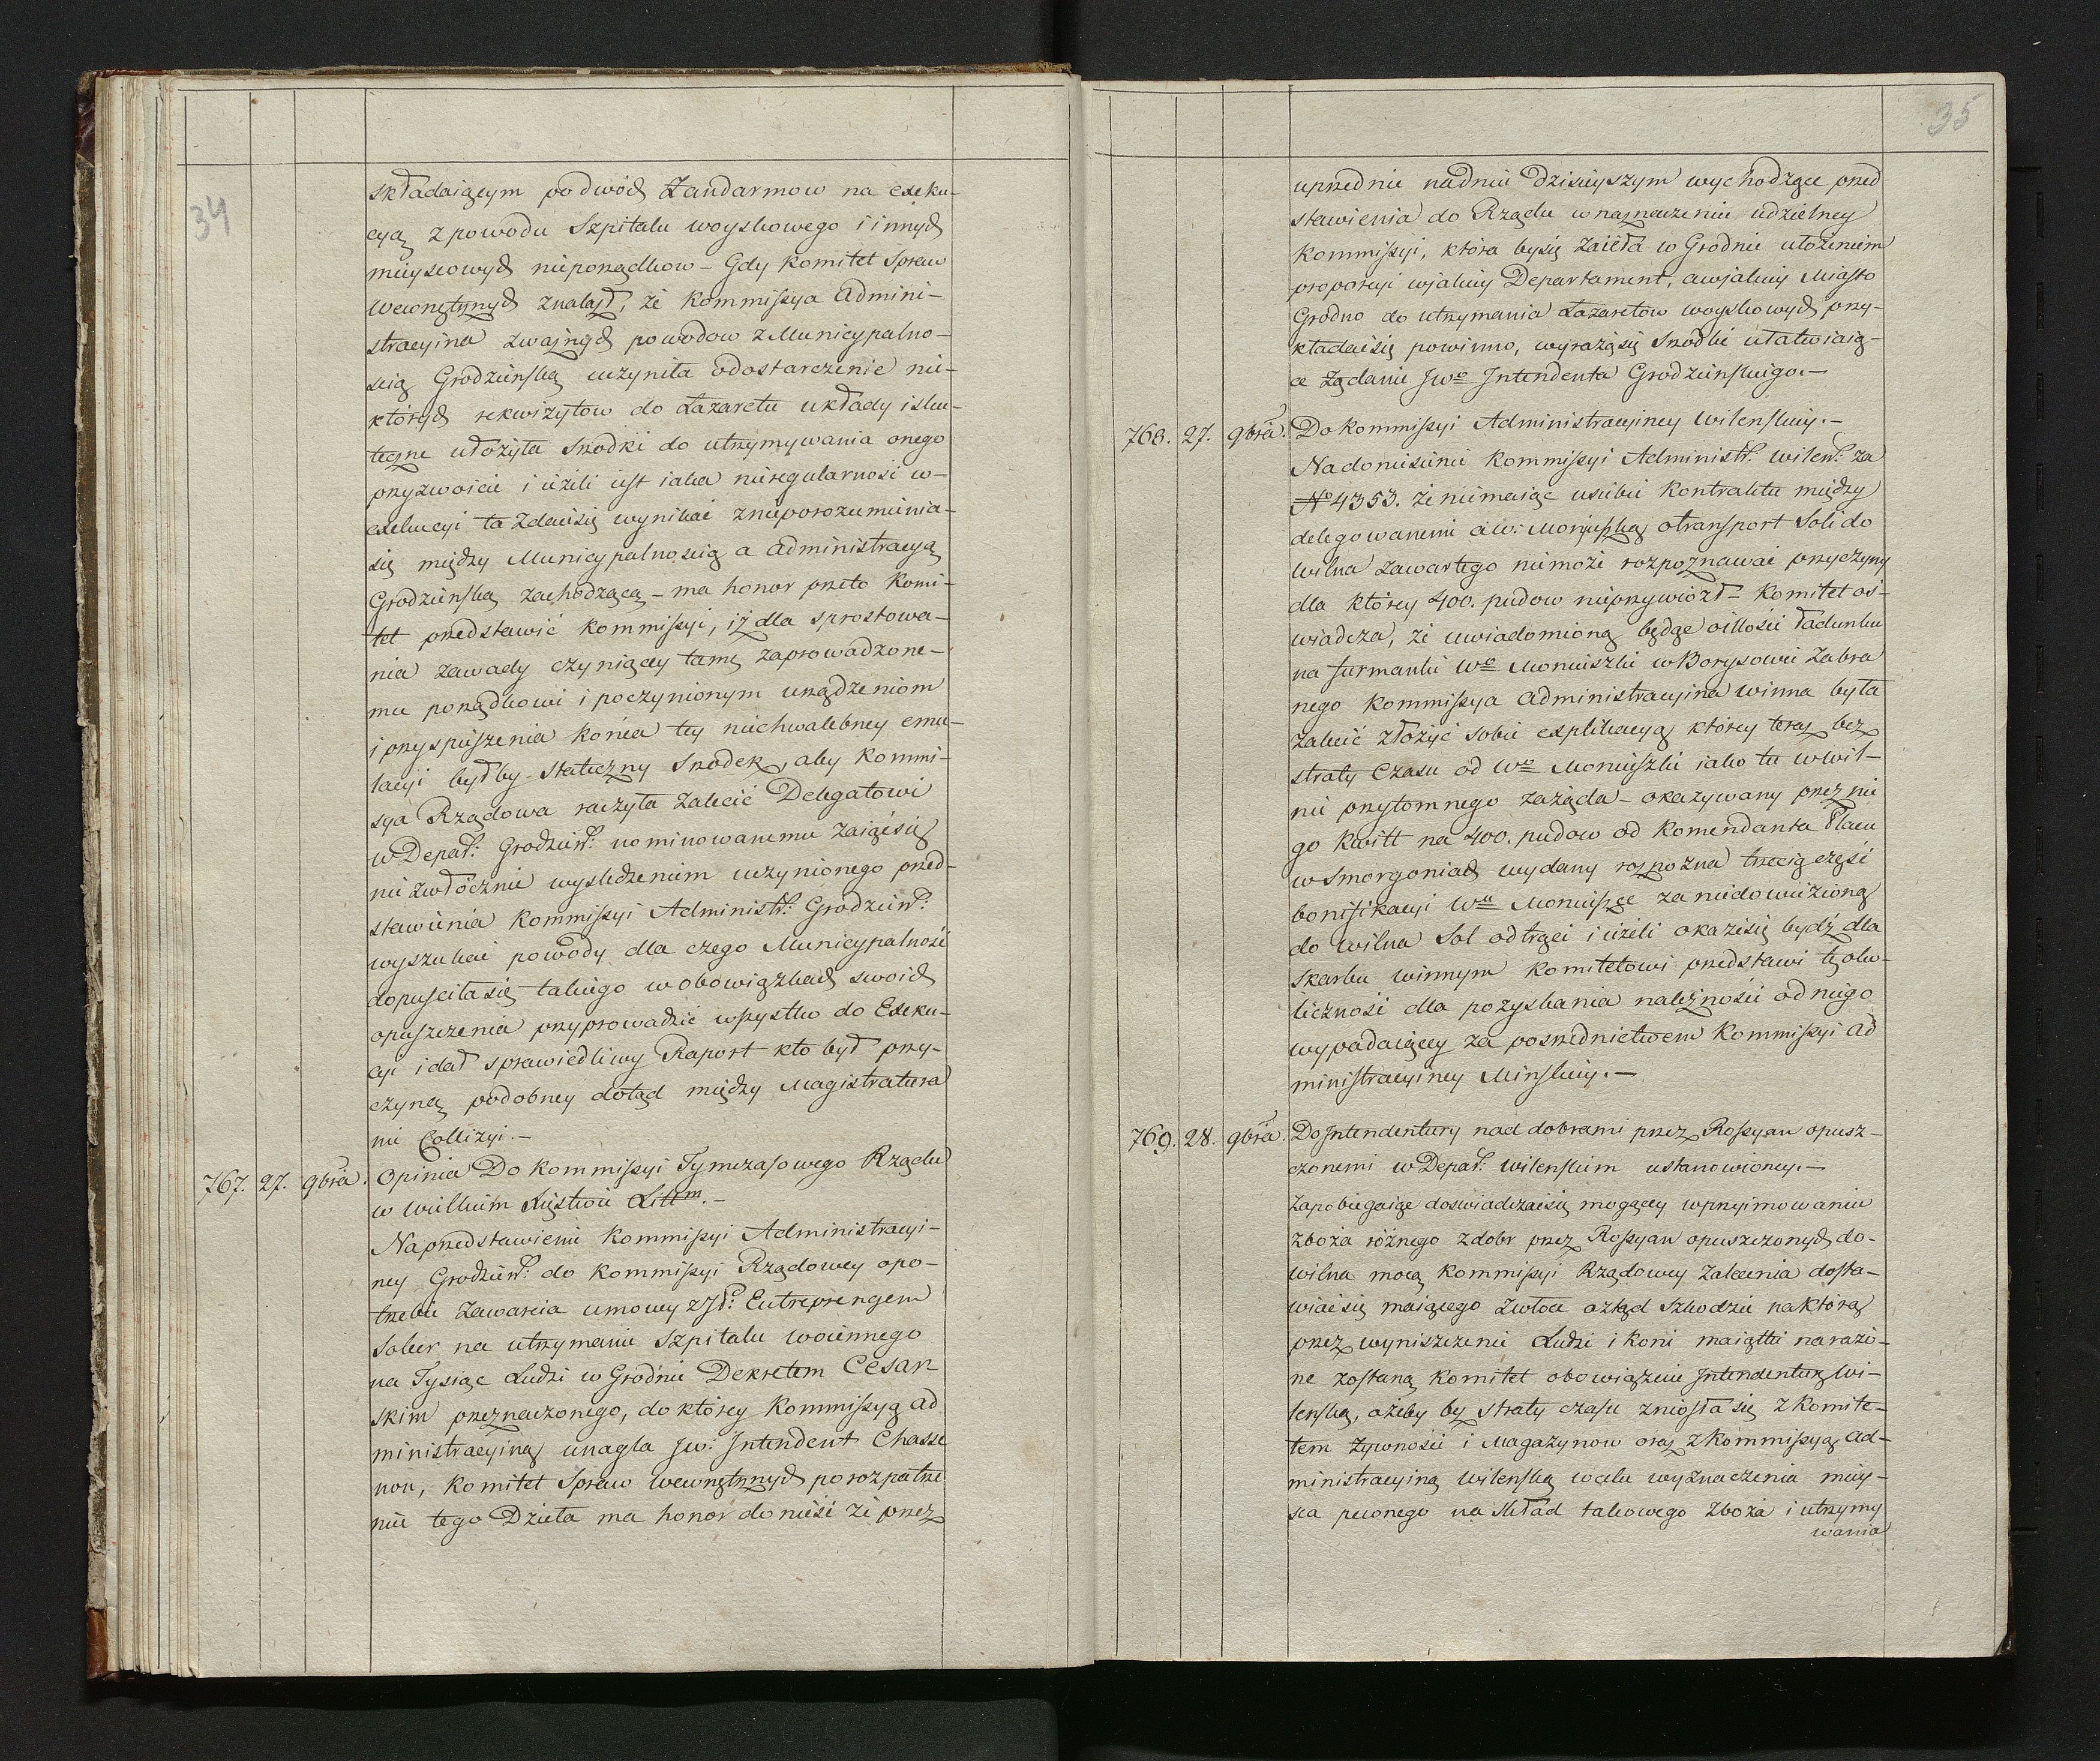 34
składaiącym podwód Żandarmow na exeku-
cyą z powodu Szpitalu woyskowego i innych
mieyscowych nieporządkow – Gdy Komitet Spraw
Wewnętrznych znalazł, że Kommissya Admini-
stracyina zważnych powodow z Municypalno-
scią Grodzieńską uczyniła o dostarczenie nie-
których rekwizytow do Lazaretu układy i sku-
teczne ułożyła Srzodki do utrzymywania onego
przyzwoicie i ieżeli iest iaka nieregularność w-
exekucyi ta zdaie się wynikać z nieporozumienia-
się między Municypalnoscią a Administracyą
Grodzieńską zachodzącą – ma honor przeto Komi-
tet przedstawić Kommissyi, iż dla sprostowa-
nia zawady czyniącey tamę zaprowadzone-
mu porządkowi i poczynionym urządzeniom
i przyspieszenia końca tey niechwalebney emu-
lacyi byłby – Stateczny Srzodek, aby Kommi-
sya Rządowa raczyła zalecić Delegatowi
w Depar: Grodzień: nominowanemu zaiąć się
niezwłócznie wysledzeniem uczynionego przed-
stawienia Kommissyi Administr: Grodzień:
wyszukać powody dla czego Municypalność
dopusciła się takiego w obowiązkach swoich
opuszczenia przyprowadzić wszystko do Exeku-
cyi i dał sprawiedliwy Raport kto był przy-
czyną podobney dotąd między Magistratura
mi Collizyi. –
767. 27. 9bra. Opinia Do Kommissyi Tymczasowego Rządu
w wielkim Xięstwie Littm. –
Na przedstawienie Kommissyi Administracyi-
ney Grodzień: do Kommissyi Rządowey o po-
trzebie zawarcia umowy z JP: Entreprengem
Saber na utrzymanie Szpitalu woiennego
na Tysiąc Ludzi w Grodnie Dekretem Cesar
skim przeznaczonego, do którey Kommissyą Ad
ministracyiną unagla JW: Intendent Chasse
non, Komitet Spraw wewnętrznych po rozpatrze
niu tego Dzieła ma honor donieść że przez
35
uprzednie na dniu dzisieyszym wychodzące przed
stawienia do Rządu w naznaczeniu udzielney
Kommissyi, która by się zaięła w Grodnie ułożeniem
proporcyi w jakiey Departament, a w jakiey Miasto
Grodno do utrzymania Lazaretow woyskowych przy-
kładać się powinno, wyrażą się Srzodki ułatwiaią-
ce żądanie JWo Intendenta Grodzieńskiego. –
768. 27. 9bra. Do Kommissyi Administracyiney Wilenskiey. –
Na doniesienie Kommissyi Administr: wilen: za
No 4353. że nie maiąc u siebie Kontraktu między
delegowanemi a W: Moniuszką o transport Soli do
Wilna zawartego nie może rozpoznawać przyczyny
dla którey 400. pudow nieprzywiozł – Komitet oś-
wiadcza, że uwiadomioną będąc o illości ładunku
na furmanki Wo Moniuszki w Borysowie zabra
nego Kommissya Administracyina winna była
zalecić złożyć sobie explikacyą którey teraz bez
straty Czasu od Wo Moniuszki iako tu w wil-
nie przytomnego zażąda – okazywany przez nie
go kwitt na 400. pudow od Komendanta Placu
w Smorgoniach wydany rozpozna trzecią część
bonifikacyi Wu Moniuszce za niedowieżioną
do Wilna Sol odtrąci i ieżeli okaże się bydź dla
Skarbu winnym Komitetowi przedstawi tę oko-
liczność dla pozyskania należności od niego
wypadaiącey za posrzednictwem Kommissyi Ad
ministracyiney Minskiey. –
769. 28. 9bra. Do Intendentury nad dobrami przez Rossyan opusz-
czonemi w Depar: wilenskim ustanowioney. –
Zapobiegaiąc doświadczać się mogącey w przyimowaniu
zboża różnego z dobr przez Rossyan opuszczonych, do-
Wilna mocą Kommissyi Rządowey zalecenia dosta-
wiać się maiącego zwłoce a ztąd Szkodzie na którą
przez wyniszczenie Ludzi i Koni maiątki narażo-
ne zostaną Komitet obowiązuie Intendenturę Wi-
lenską, ażeby bez straty czasu zniosła się z Komite-
tem Żywnosci i Magazynow oraz z Kommissyą Ad-
ministracyiną Wilenską w celu wyznaczenia miey-
sca pewnego na Skład takowego Zboża i utrzymy
wania